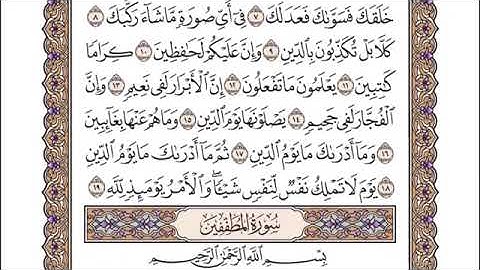 خَلَقَكَ فَسَوَّىٰكَ فَعَدَلَكَ ٧ فِىٓ أَىِّ صُورَةٍ مَّا شَآءَ رَكَّبَكَ ٨
كَلَّا بَلْ تُكَذِّبُونَ بِٱلدِّينِ ٩ وَإِنَّ عَلَيْكُمْ لَحَٰفِظِينَ ١٠ كِرَامًا
كَٰتِبِينَ ١١ يَعْلَمُونَ مَا تَفْعَلُونَ ١٢ إِنَّ ٱلْأَبْرَارَ لَفِى نَعِيمٍ ١٣ وَإِنَّ
ٱلْفُجَّارَ لَفِى جَحِيمٍ ١٤ يَصْلَوْنَهَا يَوْمَ ٱلدِّينِ ١٥ وَمَا هُمْ عَنْهَا بِغَآئِبِينَ
١٦ وَمَآ أَدْرَىٰكَ مَا يَوْمُ ٱلدِّينِ ١٧ ثُمَّ مَآ أَدْرَىٰكَ مَا يَوْمُ ٱلدِّينِ
١٨ يَوْمَ لَا تَمْلِكُ نَفْسٌ لِّنَفْسٍ شَيْـًٔا ۖ وَٱلْأَمْرُ يَوْمَئِذٍ لِّلَّهِ ١٩
سُورَةُ ٱلْمُطَفِّفِينَ
بِسْمِ ٱللَّهِ ٱلرَّحْمَٰنِ ٱلرَّحِيمِ